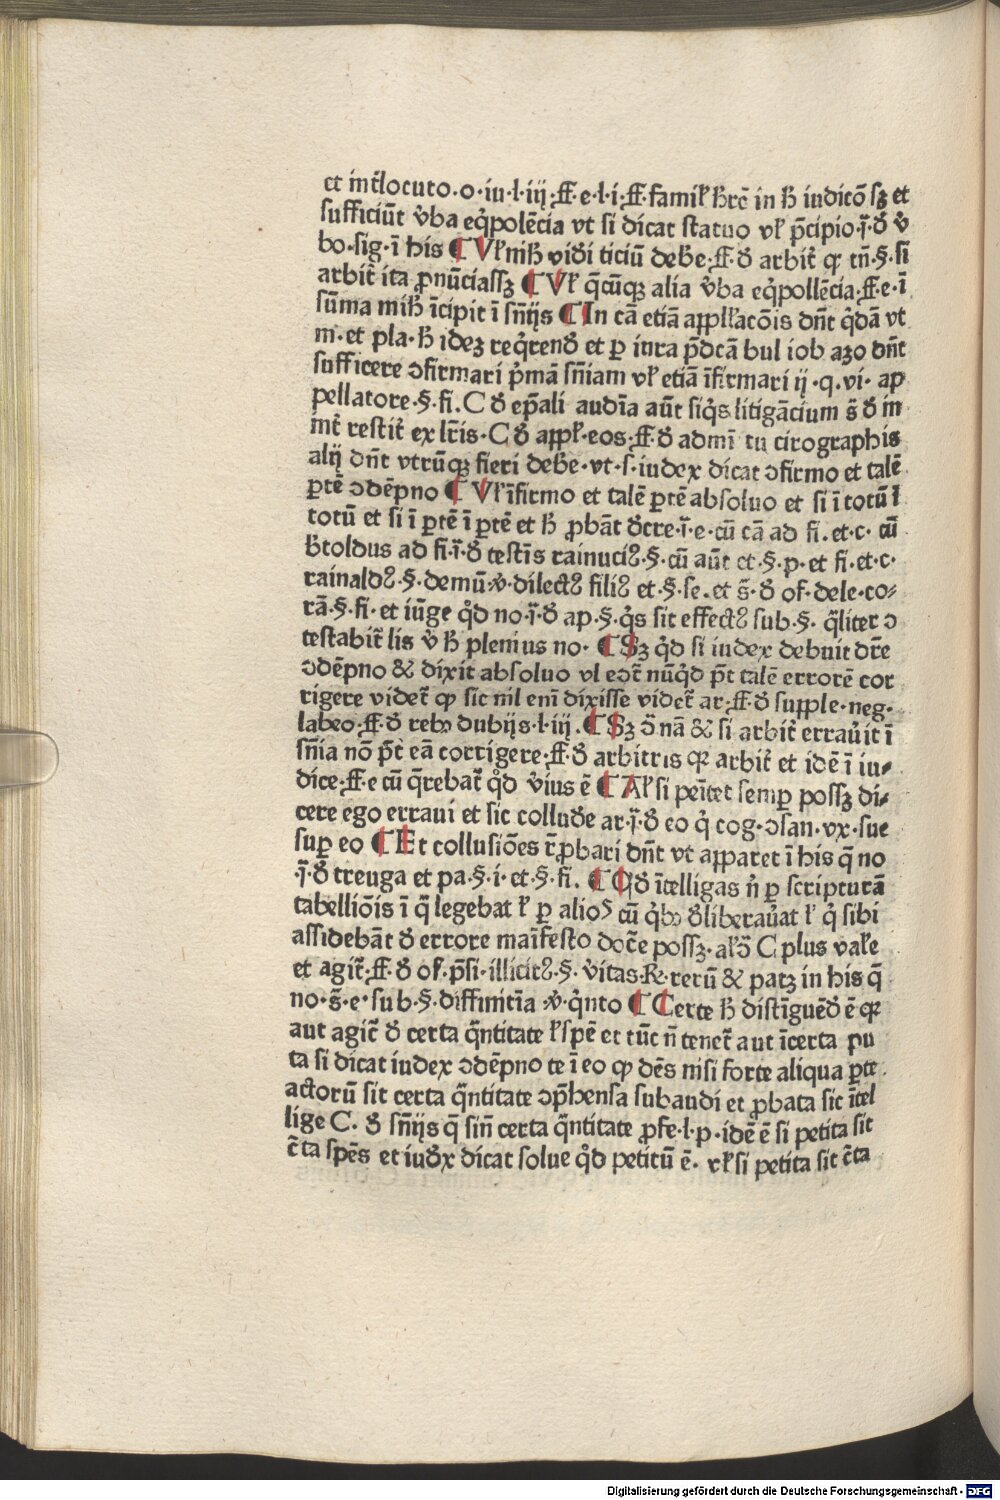 et int̃locuto.o.iu.l.iij.ff.e.l.i.ff.famil' h̄rc̄ in h̄ iudicō sʒ et
sufficiūt v̓ba eq̓polēcia vt si dicat statuo vl' p̄cipio.i̅.ꝺ̓ v̓
bo.sig.ī his ¶ Vl' mih̄ viꝺ̓i ticiū deb̓e.ff.ꝺ̓ arbit̃ ꝙ tn̄.§.si
arbit̃ ita ꝓnūciassʒ ¶ Vl' q̄cūqʒ alia v̓ba eq̓pollēcia.ff.e.ī
sūma mih̄ īcipit ī sn̄ijs ¶ In cā etiā appl'lacōis dn̄t q̓dā vt
m.et pla.h̄ ideʒ req̓renꝺ̓ et ꝑ iura p̄dcā bul iob aʒo dn̄t
sufficere ↄfirmari p̓mā sn̄iam vl' etiā īfirmari ij.q.vi.ap
pellatore.§.fi.C ꝺ̓ ep̄ali audīa aūt siq̓s litigāncium s̄ ꝺ̓ in
int̃ restit̃ ex lr̄is.C ꝺ̓ appl'.eos.ff.ꝺ̓ admī tu cirographis
alij dn̄t vtrūqʒ fieri deb̓e.vt.s.iudex dicat ↄfirmo et talē
ꝑtē ↄdēpno ¶ Vl' īfirmo et talē ꝑtē absoluo et si ī totū ī
totū et si ī ꝑtē ī ꝑtē et h̄ ꝓbāt ꝺ̓cre.i̅.e.cū cā ad fi.et.c.cū
b̓toldus ad fi.i̅.ꝺ̓ testīs rainuciꝰ.§.cū aūt et.§.p.et fi.et.c.
rainaldꝰ.§.demū.v̓.dilectꝰ filiꝰ et.§.se.et s̄.ꝺ̓ of.dele.co⸗
rā.§.fi.et iūge q̓d no.i̅.ꝺ̓ ap.§.q̓s sit effectꝰ sub.§.q̄liter ↄ
testabit̃ lis v̓ h̄ plenius no.¶ Sʒ q̓d si iudex debuit dr̄e
ↄdēpno & dixit absoluo vl eↄt̃ nūq̓d p̄t talē errorē cor
rigere videt̃ ꝙ sic nil enī dixisse videt̃ ar.ff.ꝺ̓ supple.neg.
labeo.ff.ꝺ̓ rebꝫ dubijs.l.iij.¶ Sʒ ↄ̄ nā & si arbit̃ errau̓it ī
sn̄ia nō p̄t eā corrigere.ff.ꝺ̓ arbitris ꝙ arbit̃ et idē ī iu⸗
dice.ff.e cū q̄rebat̃ q̓d v̓ius ē ¶ Al' si penītet semꝑ possʒ di⸗
cere ego erraui et sic colluꝺ̓e ar.i̅.ꝺ̓ eo q̓ cog.ↄsan.vx.sue
suꝑ eo ¶ Et collusiōes r̄ꝓbari dn̄t vt apparet ī his q̄ no
.i̅.ꝺ̓ treuga et pa.§.i.et.§.fi.¶ Qꝺ̓ ītelligas n̓ ꝑ scripturā
tabelliōis ī q̄ legebat l' ꝑ alios cū q̓bꝫ ꝺ̓liberau̓at l' q̓ sibi
assidebāt ꝺ̓ errore maīfesto doc̄e possʒ.al'ↄ̄ C plus val'e
et agit̃.ff.ꝺ̓ of.p̄si.illicitꝰ.§.v̓itas.R.rerū & patʒ in his q̄
no.s̄.e.sub.§.diffinitīa.v̓.q̓nto ¶ Certe h̄ distīguēꝺ̓ ē ꝙ
aut agit̃ ꝺ̓ certa q̄ntitate l' spē et tūc n̄ tenet̃ aut īcerta pu
ta si dicat iudex ↄdēpno te ī eo ꝙ dēs nisi forte aliqua ꝑte
actorū sit certa q̄ntitate ↄp̄hensa subaudi et ꝓbata sic ītel
lige C.ꝺ̓ sn̄ijs q̄ sin̄ certa q̄ntitate ꝓfe.l.p.idē ē si petita sit
c̄ta spēs et iuꝺ̓x dicat solue q̓d petitū ē.vl' si petita sit c̄ta
Digitalisierung gefördert durch die Deutsche Forschungsgemeinschaft - DFG